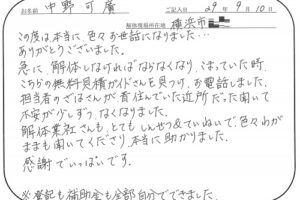 お名前 中野可廣 ご記入日 29年9月10日
解体現場所在地 横浜市
この度は本当に、色々お世話になりました…
ありがとうございました。
急に、解体しなければならなくなり、こまっていた時
こちらの無料見積ガイドさんを見つけ、お電話しました。
担当者のざはさんが昔住んでいた近所だった聞いて
不安が少しずつ、なくなりました。
解体業社さんも、とてもしんせつ&ていねいで、色々わが
ままも聞いてくださり、本当に助かりました。
感謝でいっぱいです。
※登記も補助金も全部自分でできました。